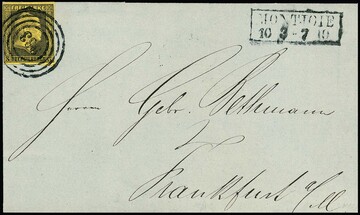 MONTJOIE
10 3 - 7 10
Herrn Gebr. Bethmann
Frankfurt a/M